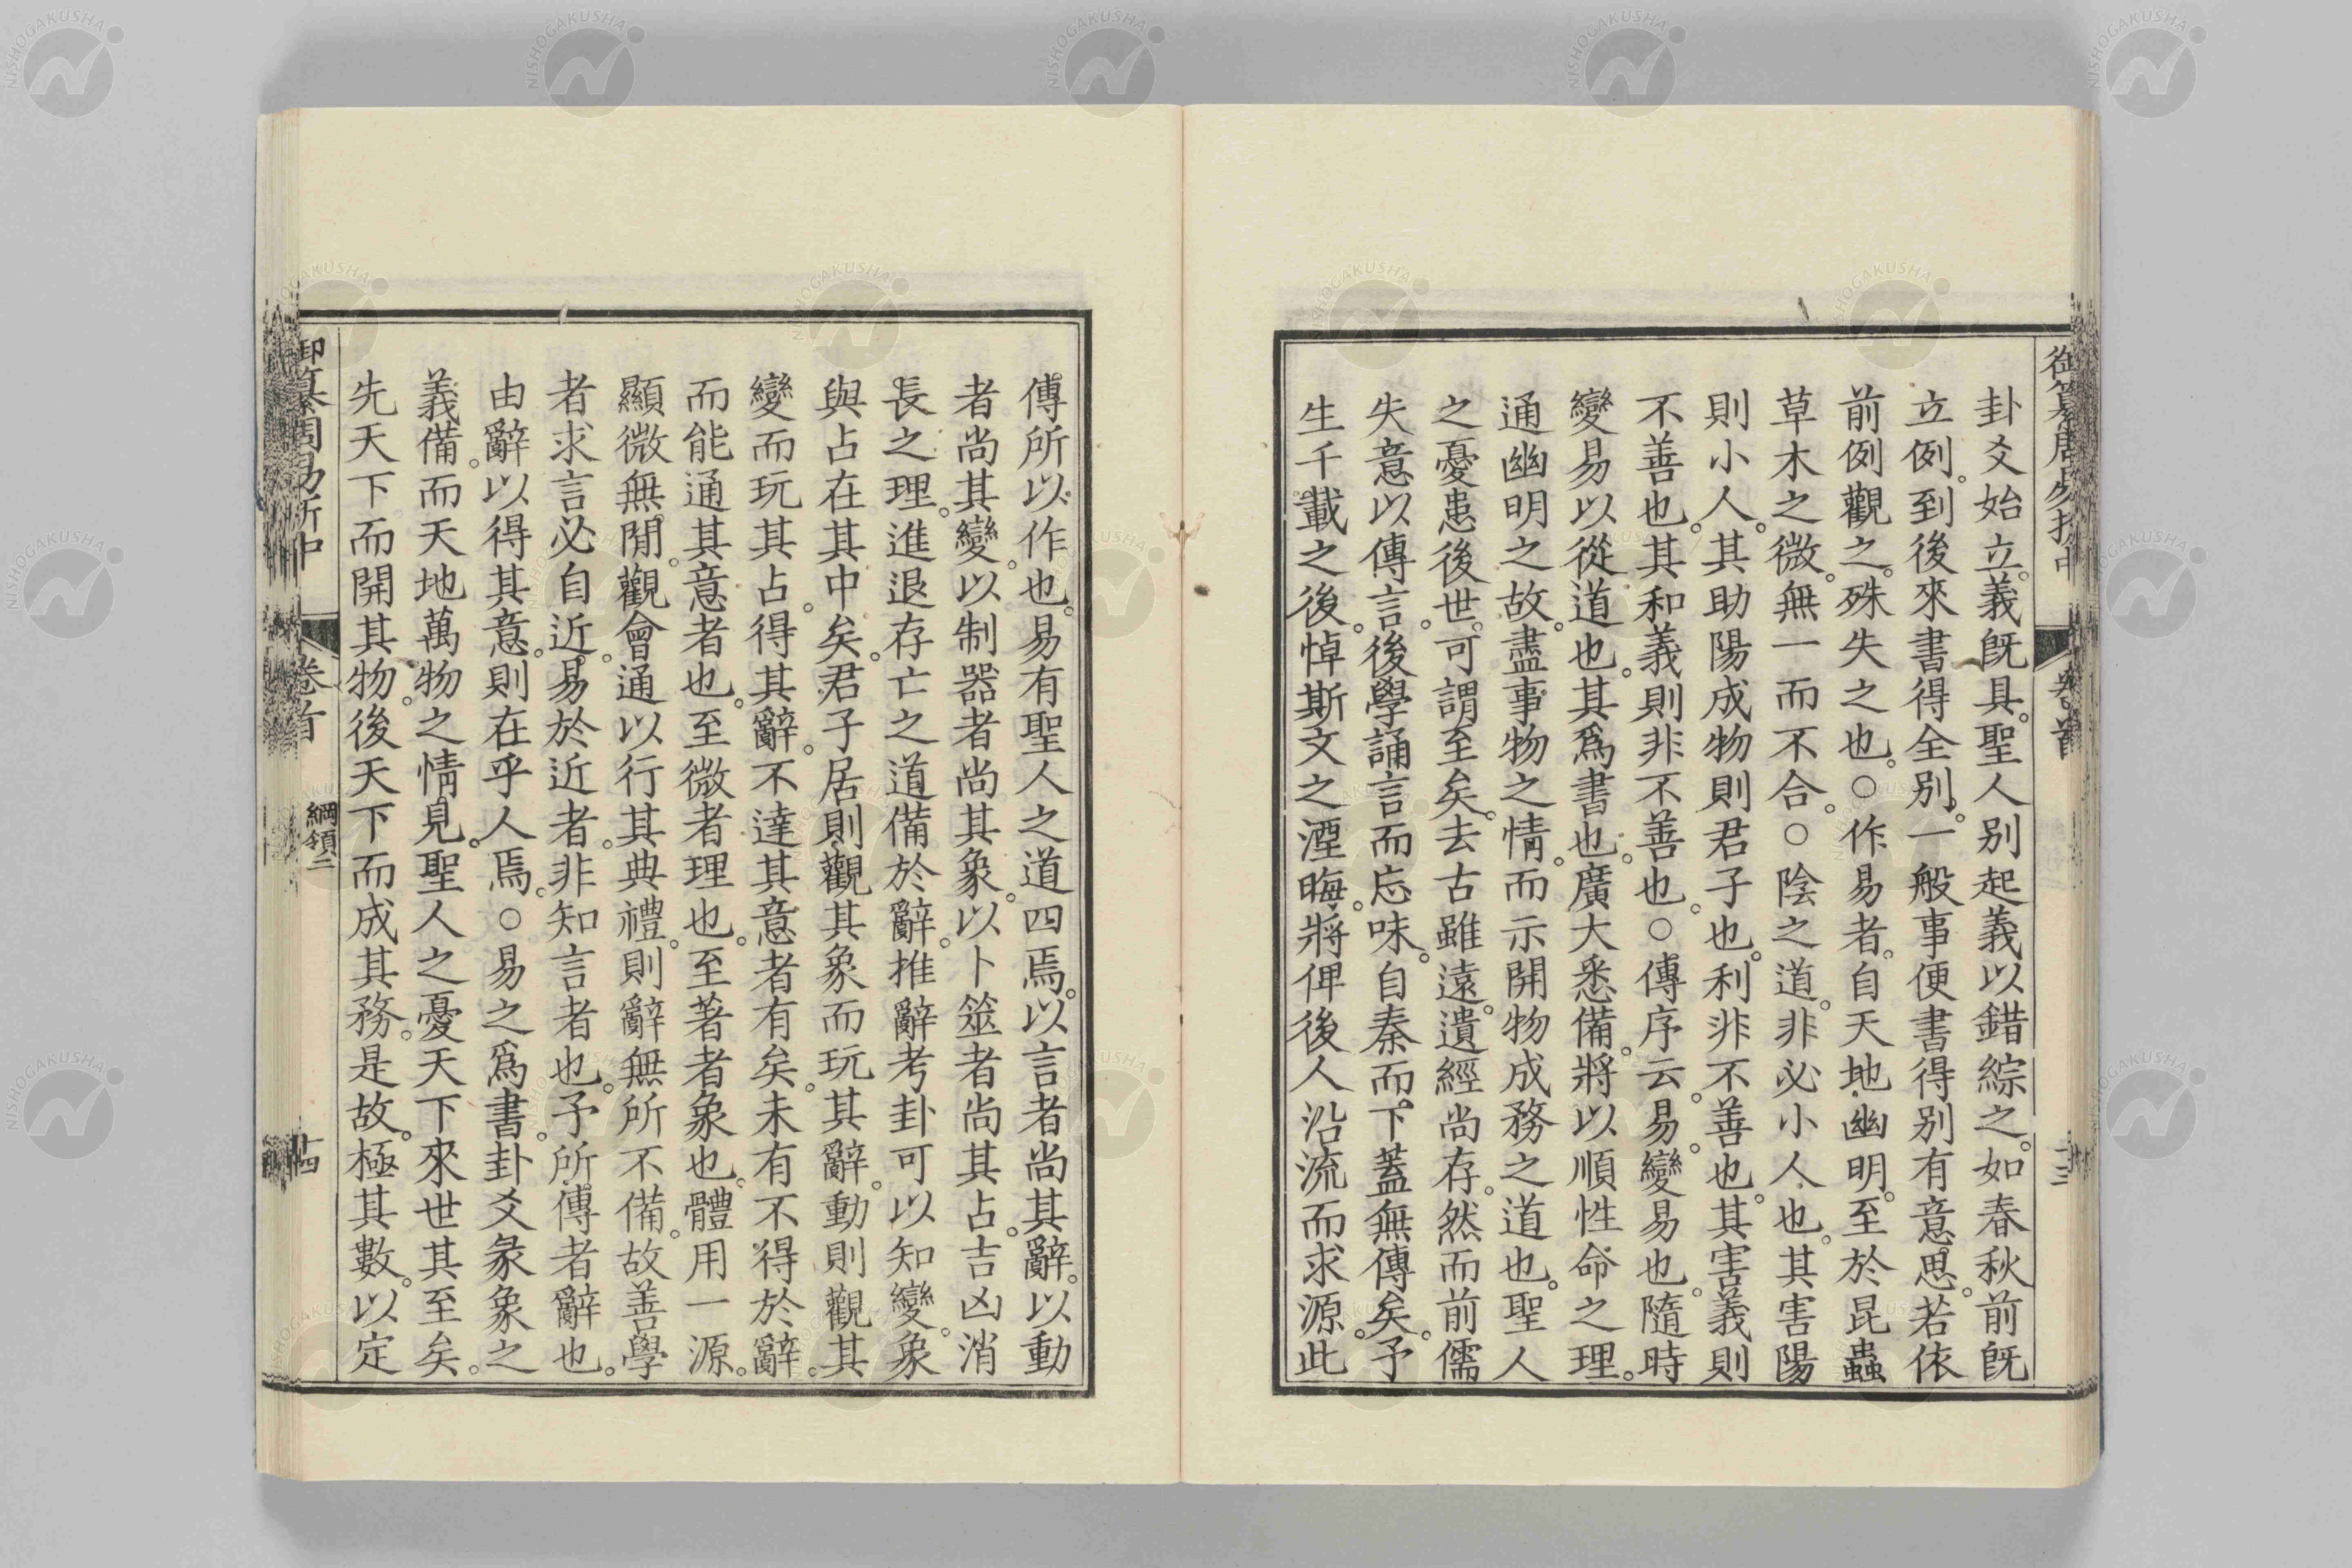 卦爻始立。義旣具。聖人別起義以錯綜之。如春秋前旣
立例。到後來書得全別。一般事便書得別有意思。若依
前例觀之。殊失之也。○作易者。自天地幽明。至於昆蟲
草木之微。無一而不合。○陰之道。非必小人也。其害陽
則小人。其助陽成物則君子也。利非不善也。其害義則
不善也。其和義則非不善也。○傳序云。易。變易也。隨時
變易以從道也。其爲書也。廣大悉備。將以順性命之理。
通幽明之故。盡事物之情。而示開物成務之道也。聖人
之憂患後世。可謂至矣。去古雖遠。遺經尚存。然而前儒
失意以傳言。後學誦言而忘味。自秦而下。蓋無傳矣。予
生千載之後。悼斯文之湮晦。將俾後人沿流而求源。此
傳所以作也。易有聖人之道四焉。以言者尚其辭。以動
者尚其變。以制器者尚其象。以卜筮者尚其占。吉凶消
長之理。進退存亡之道備於辭。推辭考卦可以知變。象
與占在其中矣。君子居則觀其象而玩其辭。動則觀其
變而玩其占。得其辭。不達其意者有矣。未有不得於辭。
而能通其意者也。至微者理也。至著者象也。體用一源。
顯微無閒。觀會通以行其典禮。則辭無所不備。故善學
者求言必自近。易於近者。非知言者也。予所傳者辭也。
由辭以得其意。則在乎人焉。○易之爲書。卦爻彖象之
義備。而天地萬物之情見。聖人之憂天下來世其至矣。
先天下而開其物。後天下而成其務。是故。極其數。以定
御纂周易折中
卷首
綱領二
十四
NISHOGAKUSHA